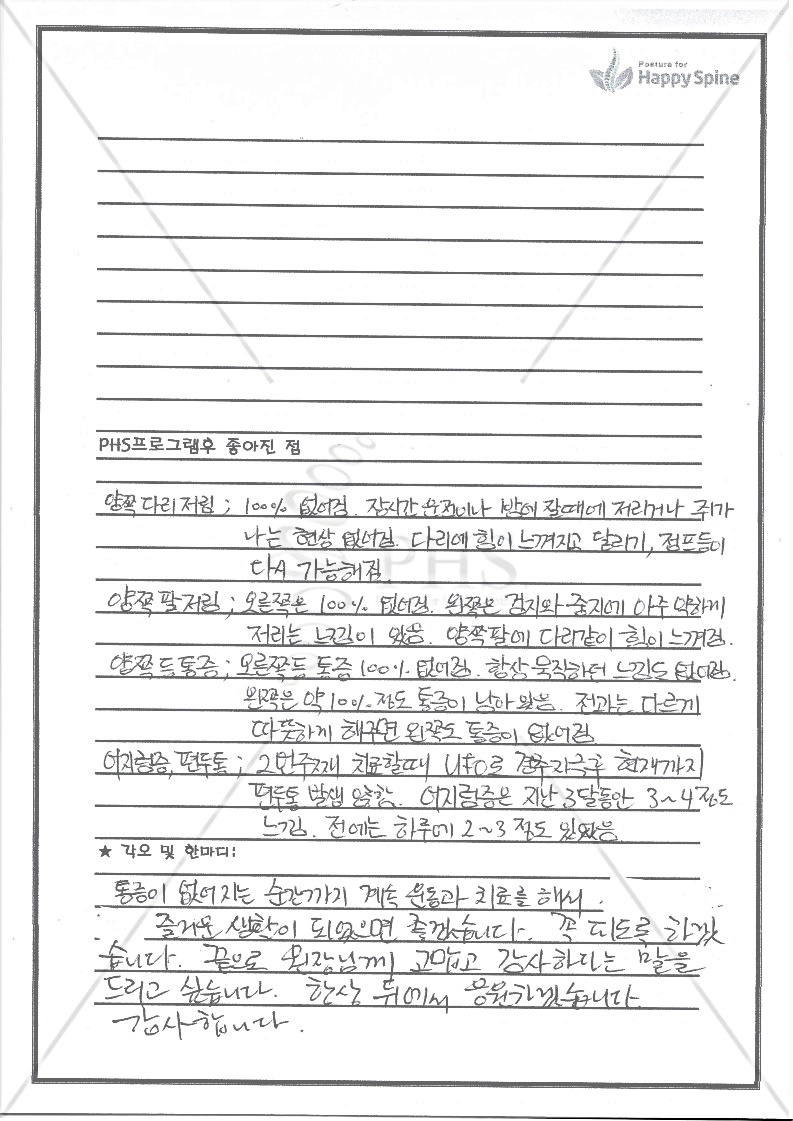 Posture for
Happy Spine
PHS프로그램후 좋아진 점
양쪽다리저림 ; 100% 없어짐. 장시간 운전이나 밤에 잘때에 저리거나 쥐가
나는 현상 없어짐. 다리에 힘이 느껴지고 달리기, 점프등이
다시 가능해짐.
양쪽 팔저림 ; 오른쪽은 100% 없어짐. 왼쪽은 검지와 중지에 아주 약하게
저리는 느낌이 있음. 양쪽팔에 다리같이 힘이 느껴짐.
양쪽 등통증 ; 오른쪽등 통증 100% 없어짐. 항상 묵직하던 느낌도 없어짐.
왼쪽은 약 10% 정도 통증이 남아 있음. 전과는 다르게
따뜻하게 해주면 왼쪽도 통증이 없어짐.
어지럼증, 편두통 ; 2번주째 치료할때 UFO로 경추자극후 현재까지
편두통 발생 안함. 어지럼증은 지난 3달동안 3~4 정도
느낌. 전에는 하루에 2~3 정도 있었음.
PHS
★ 각오 및 한마디:
통증이 없어지는 순간까지 계속 운동과 치료를 해서
즐거운 생활이 되었으면 좋겠습니다. 꼭 되도록 하겠
습니다. 끝으로 원장님께 고맙고 감사하다는 말을
드리고 싶습니다. 항상 뒤에서 응원하겠습니다.
감사합니다.